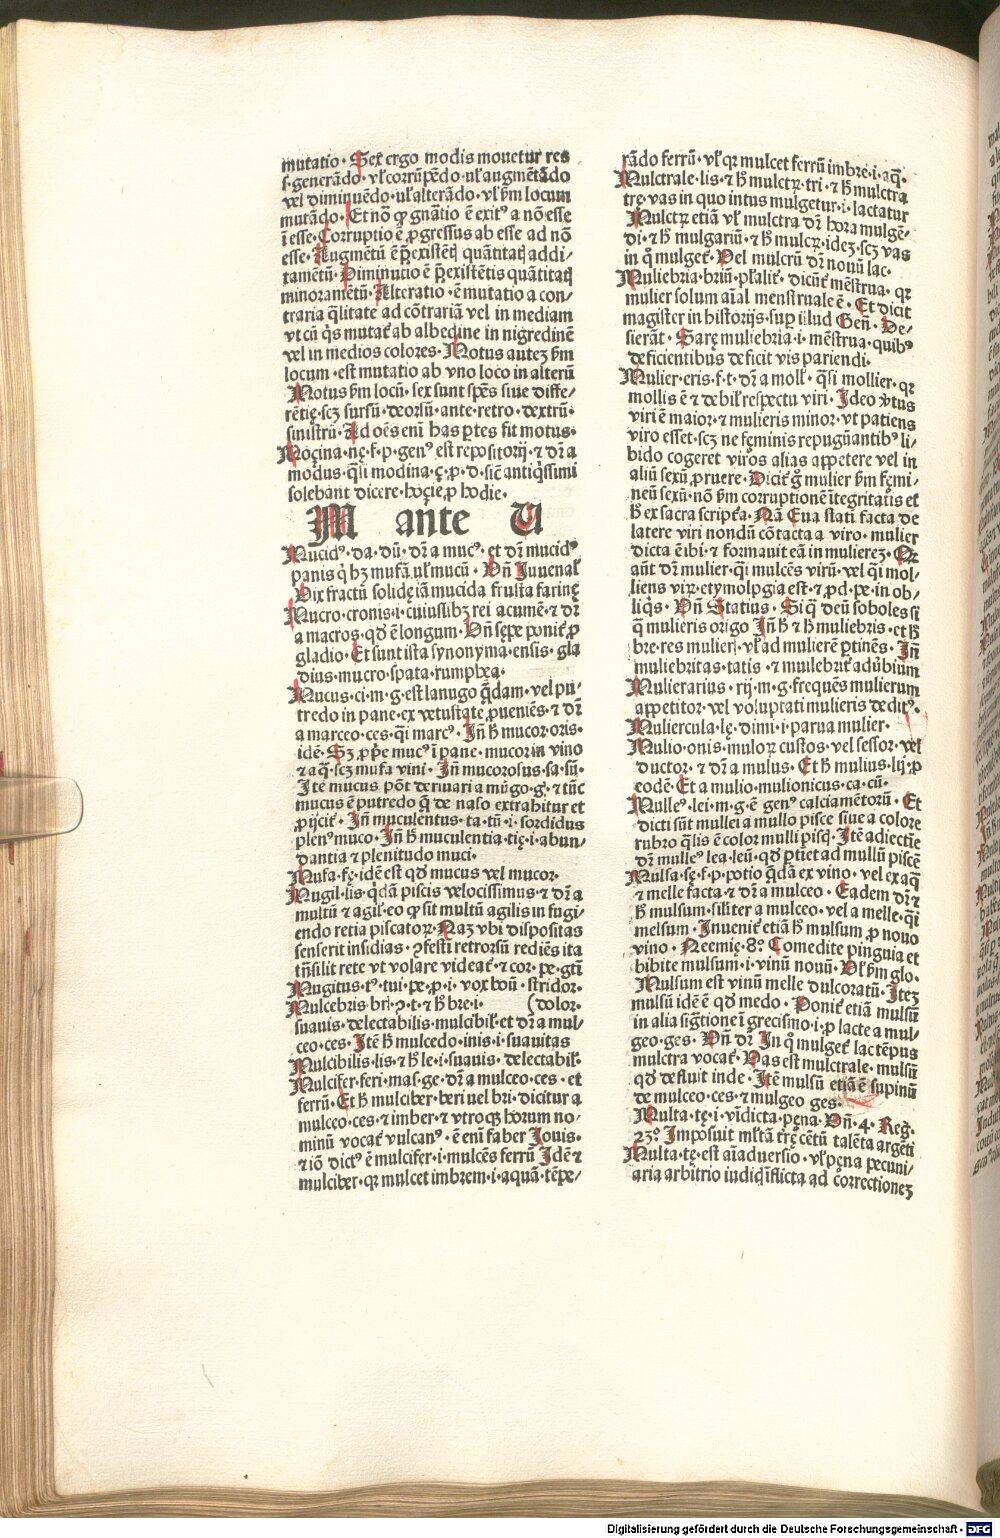 mutatio· Sex ergo modis mouetur res
s·generādo· vl̄ corrūpēdo·ul̄ augmētādo
vel diminuēdo·ul̄ alterādo·vl̄ ẜm locum
mutādo· Et nō ꝓ gn̄atio ē exitꝰ a nō esse
ī esse·Corruptio ē ꝓgressus ab esse ad nō
esse·Augmētū ē p̄existētꝭ quātitatꝭ addi/
tamētū·Diminutio ē p̄existētis quātitatꝭ
minoramētū·Alteratio·ē mutatio a con/
traria q̄litate ad cōtrariā vel in mediam
vt cū q̇s mutat̄ ab albedine in nigredinē
vel in medios colores·Motus autez ẜm
locum·est mutatio ab vno loco in alterū
Motus ẜm locū·sex sunt spēs siue diffe/
rētię·scȝ sursū·deorsū·ante·retro·dextrū·
sinistrū·Ad oēs enī has ꝑtes fit motus·
Moçina·nę·f·p·genꝰ est repositorij·⁊ dr̄ a
modus·q̄si modina·ç·ꝓ·d·sic̄ antiq̇ssimi
solebant dicere·hoçie ꝓ hodie·
M ante U
Mucidꝰ·da·dū·dr̄ a mucꝰ·et dr̄ mucidꝰ
panis q̇ hȝ mufā ul̄ mucū· Vn̄ Iuuenal̄
Vix fractū solidę iā mucida frusta farinę
Mucro·cronis·i·cuiuslibȝ rei acumē·⁊ dr̄
a macros·qd̄ ē longum·Vn̄ sępe ponit̄ ꝓ
gladio·Et sunt ista synonyma·ensis·gla
dius·mucro·spata·rumphea·
Mucus·ci·m·g·est lanugo q̄dam·vel pu/
tredo in pane·ex vetustate ꝓueniēs·⁊ dr̄
a marceo·ces·q̇i marcꝰ·In̄ h̄ mucor·oris·
idē· Sȝ ꝓp̄e mucꝰ ī pane·mucor in vino
⁊ aq̄·scȝ mufa vini· In̄ mucorosus·sa·sū·
Itē mucus pōt deriuari a mūgo·gꝭ·⁊ tūc
mucus ē putredo q̄ de naso extrahitur et
ꝓijcit̄· In̄ muculentus·ta·tū·i·sordidus
plenꝰ muco·In̄ h̄ muculentia·tię·i·abun/
dantia ⁊ plenitudo muci·
Mufa·fę·idē est qd̄ mucus vel mucor·
Mugil·lis·q̇dā piscis velocissimus·⁊ dr̄ a
multū ⁊ agil·eo ꝙ sit multū agilis in fugi/
endo retia piscatoꝝ·Naȝ vbi dispositas
senserit insidias·ꝯfesti retrorsū rediēs ita
trn̄silit rete vt volare videat̄·⁊ cor·pe·gtī
Mugitus·tꝰ·tui·pe·ꝓ·i·vox boū·stridor·
Mulcebris·bri·ꝯ·t·⁊ h̄ bre·i· (dolor·
suauis·delectabilis·mulcibil̄·et dr̄ a mul/
ceo·ces·Itē h̄ mulcedo·inis·i·suauitas
Mulcibilis·lis·⁊ h̄ le·i·suauis·delectabil̄·
Mulcifer·feri·mas·ge·dr̄ a mulceo·ces·et
ferrū·Et h̄ mulciber·beri uel bri·dicitur a
mulceo·ces·⁊ imber·⁊ vtroqȝ horum no/
minū vocat̄ vulcanꝰ·ē enī faber Iouis·
⁊ iō dictꝰ ē mulcifer·i·mulcēs ferrū Idē ⁊
mulciber·qꝛ mulcet imbrem·i·aquā·tēpe/
rādo ferrū·vl̄ qꝛ mulcet ferrū imbre·i·aq̄·
Mulctrale·lis·⁊ h̄ mulctꝝ·tri·⁊ h̄ mulctra
tre·vas in quo intus mulgetur·i·lactatur
Mulctꝝ etiā vl̄ mulctra dr̄ hora mulgē/
di·⁊ h̄ mulgariū·⁊ h̄ mulcꝝ·ideȝ·scȝ vas
in q̊ mulget̄·Vel mulcrū dr̄ nouū lac·
Muliebria·briū·pl̄alit̄·dicūt̄ mēstrua·qꝛ
mulier solum aīal menstruale ē· Et dicit
magister in historijs·suꝑ illud Gen̄· De/
sierāt· Sarę muliebria·i·mēstrua·quibꝰ
deficientibus deficit vis pariendi·
Mulier·eris·f·t·dr̄ a moll̄·q̄si mollier·qꝛ
mollis ē ⁊ debil̄ respectu viri·Ideo v̄tus
viri ē maior·⁊ mulieris minor·vt patiens
viro esset·scȝ ne feminis repugūantibꝰ li/
bido cogeret viros alias appetere vel in
aliū sexū ꝓruere· Dicit̄ ḡ mulier ẜm femi/
neū sexū·nō ẜm corruptionē itegritatis et
h̄ ex sacra script̄a·Nā Eua stati facta de
latere viri nondū cōtacta a viro·mulier
dicta ē ibi·⁊ formauit eā in mulierēȝ·Or
aūt dr̄ mulier·q̇i mulcēs virū·vel q̇i mol/
liens viꝝ·etymologia est·⁊ ꝓd·pe·in ob/
liq̇s· Vn̄ Statius· Si q̄ deū soboles si
q̄ mulieris origo In̄ h̄ ⁊ h̄ muliebris·et h̄
bre·res mulieri·vl̄ ad mulierē ꝑtinēs· In̄
muliebritas·tatis·⁊ muilebrit̄ adūbium
Mulierarius·rij·m·g·frequēs mulierum
appetitor·vel voluptati mulieris deditꝰ·
Muliercula·lę·dimi·i·parua mulier·
Mulio·onis·muloꝝ custos·vel sessor·vel
ductor·⁊ dr̄ a mulus· Et h̄ mulius·lij·ꝓ
eodē·Et a mulio·mulionicus·ca·cū·
Mulleꝰ·lei·m·g·ē genꝰ calciamētorū· Et
dicti sūt mullei a mullo pisce siue a colore
rubro q̄lis ē color mulli piscꝭ·Itē adiectiē
dr̄ mulleꝰ lea·leū·qd̄ ꝑtiet ad mullū piscē
Mulsa·sę·f·p·potio q̄dā ex vino·vel ex aq̄
⁊ melle facta·⁊ dr̄ a mulceo· Eadem dr̄ ⁊
h̄ mulsum·silit̄er a mulceo·vel a melle·q̇i
melsum·Inuenit̄ etiā h̄ mulsum ꝓ nouo
vino·Neemię·8º Comedite pinguia et
bibite mulsum·i·vinū nouū·Vl̄ ẜm glo·
Mulsum est vinū melle dulcoratū·Iteȝ
mulsū idē ē qd̄ medo· Ponit̄ etiā mulsū
in alia sig̅tione ī grecismo·i·ꝓ lacte a mul/
geo·ges· Vn̄ dr̄ In q̊ mulget̄ lac tēpus
mulctra vocat̄·Vas est mulctrale·mulsū
qd̄ defluit inde·Itē mulsū etiā ē supinū
de mulceo·ces·⁊ mulgeo ges·
Multa·tę·i·vīdicta·pęna·Vn̄·4·Reg·
23º Imposuit ml̄tā trę cētū talēta argēti
Multa·tę·est aīaduersio·vl̄ pęna pecuni/
aria arbitrio iudicꝭ iflicta ad correctioneȝ
Digitalisierung gefördert durch die Deutsche Forschungsgemeinschaft - DFG